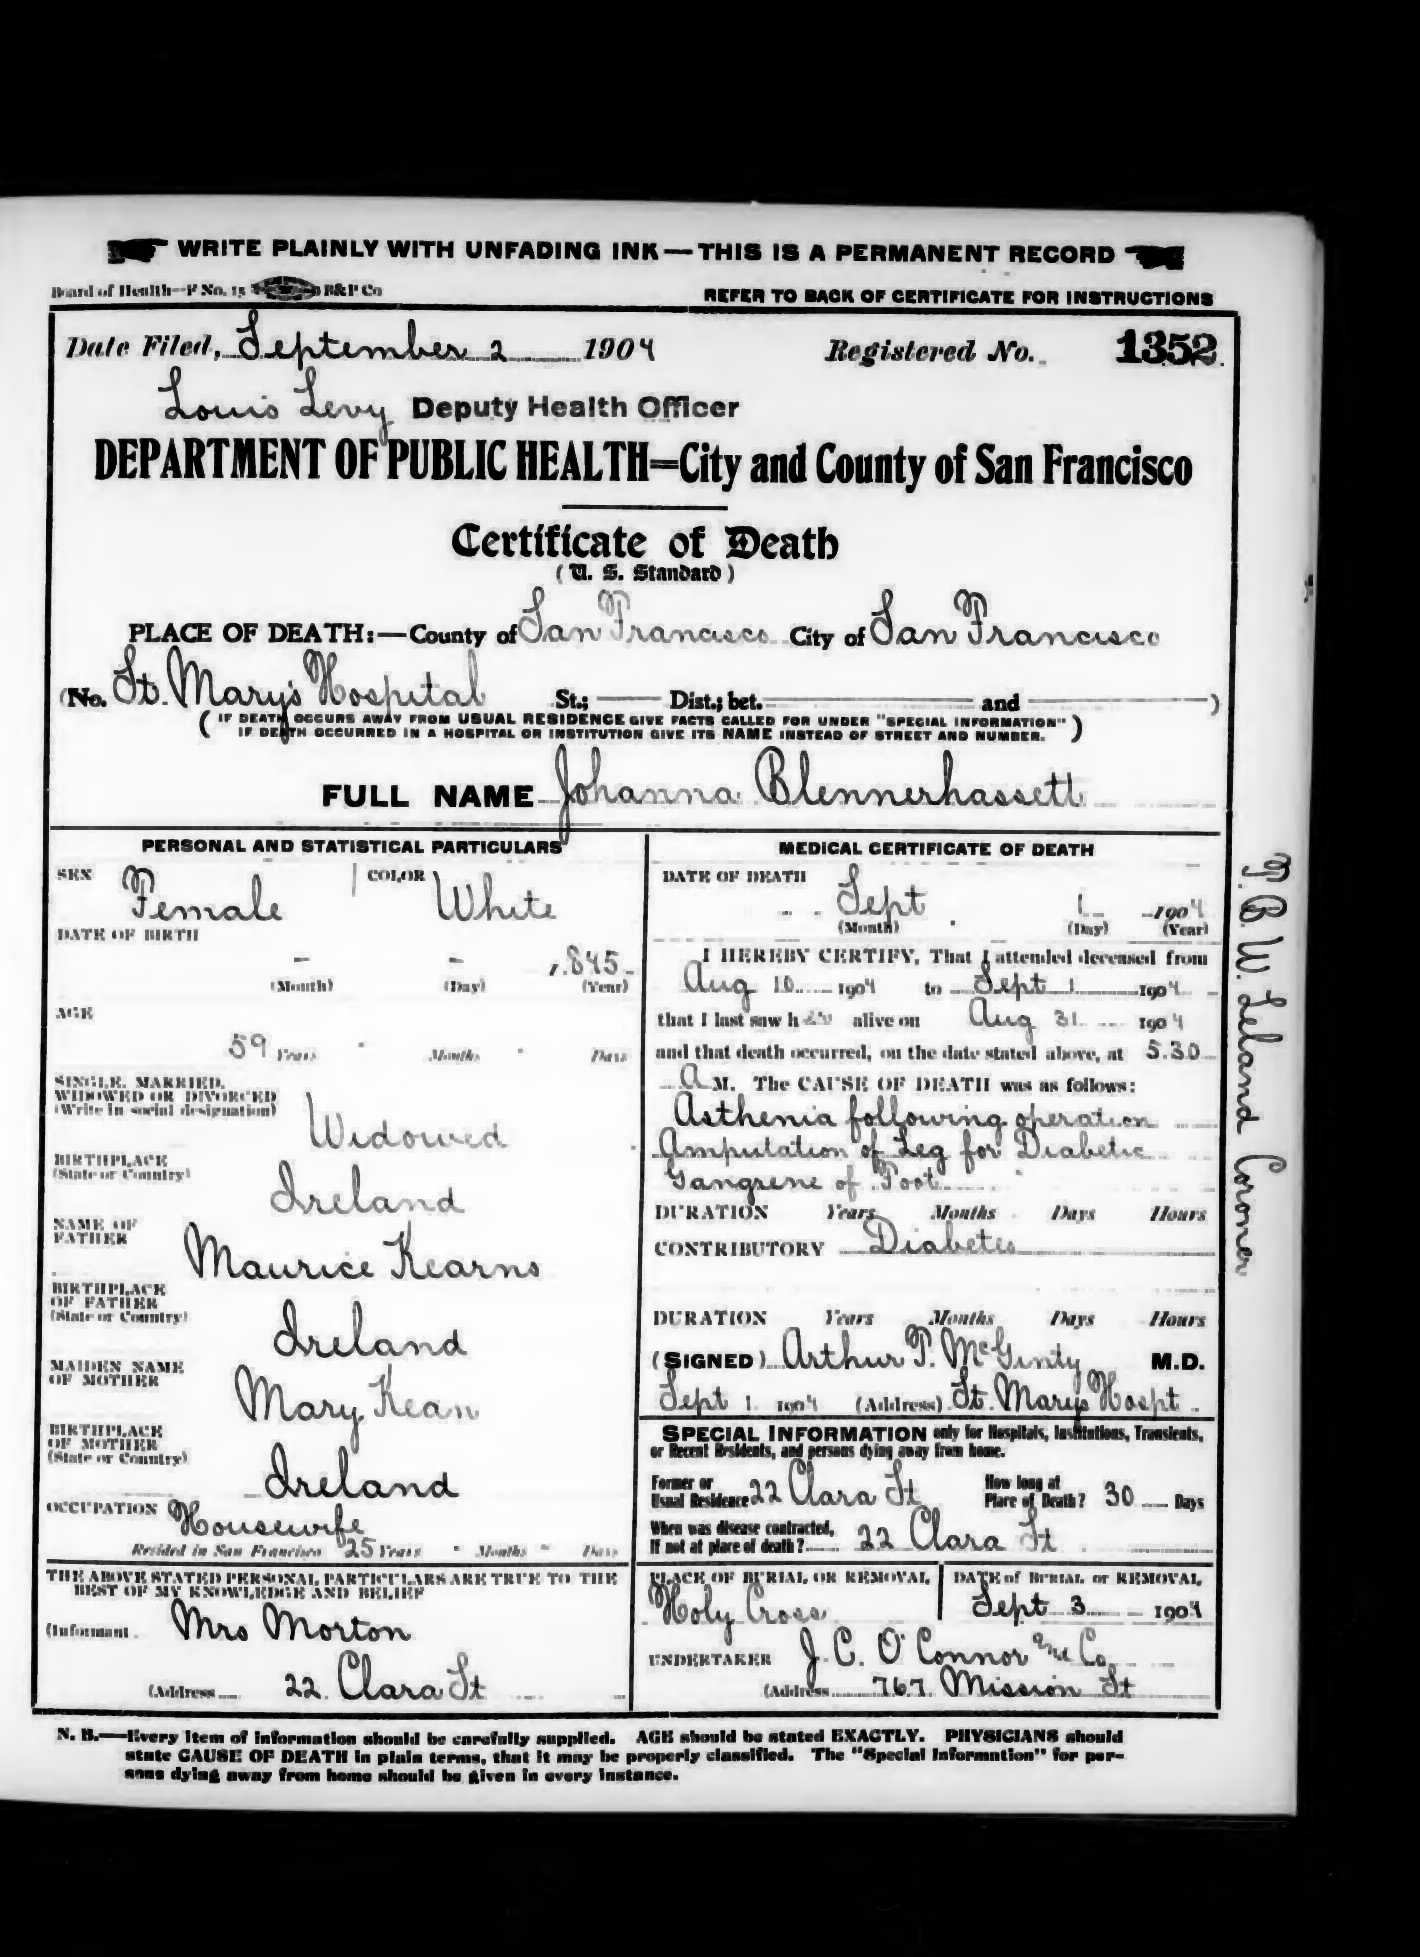 WRITE PLAINLY WITH UNFADING INK — THIS IS A PERMANENT RECORD
Board of Health—F No. 15 B&P Co
REFER TO BACK OF CERTIFICATE FOR INSTRUCTIONS
Date Filed, September 2 1904 Registered No. 1352
Louis Levy Deputy Health Officer
DEPARTMENT OF PUBLIC HEALTH=City and County of San Francisco
Certificate of Death
(U. S. Standard)
PLACE OF DEATH:—County of San Francisco City of San Francisco
(No. St. Mary's Hospital St.; — Dist.; bet. — and — )
(IF DEATH OCCURS AWAY FROM USUAL RESIDENCE GIVE FACTS CALLED FOR UNDER "SPECIAL INFORMATION"
IF DEATH OCCURRED IN A HOSPITAL OR INSTITUTION GIVE ITS NAME INSTEAD OF STREET AND NUMBER.)
FULL NAME Johanna Blennerhassett
PERSONAL AND STATISTICAL PARTICULARS
SEX Female COLOR White
DATE OF BIRTH
- - 1845
(Month) (Day) (Year)
AGE
59 Years - Months - Days
SINGLE, MARRIED,
WIDOWED OR DIVORCED
(Write in social designation)
Widowed
BIRTHPLACE
(State or Country)
Ireland
NAME OF
FATHER
Maurice Kearns
BIRTHPLACE
OF FATHER
(State or Country)
Ireland
MAIDEN NAME
OF MOTHER
Mary Kean
BIRTHPLACE
OF MOTHER
(State or Country)
Ireland
OCCUPATION Housewife
Resided in San Francisco 25 Years - Months - Days
THE ABOVE STATED PERSONAL PARTICULARS ARE TRUE TO THE
BEST OF MY KNOWLEDGE AND BELIEF
(Informant Mrs Morton
(Address 22 Clara St
MEDICAL CERTIFICATE OF DEATH
DATE OF DEATH
Sept 1 1904
(Month) (Day) (Year)
I HEREBY CERTIFY, That I attended deceased from
Aug 10 1904 to Sept 1 1904
that I last saw her alive on Aug 31 1904
and that death occurred, on the date stated above, at 5.30
A M. The CAUSE OF DEATH was as follows:
Asthenia following operation
Amputation of Leg for Diabetic
Gangrene of Foot
DURATION Years Months Days Hours
CONTRIBUTORY Diabetes
DURATION Years Months Days Hours
(SIGNED) Arthur P. McGinty M.D.
Sept 1 1904 (Address) St. Marys Hospt.
SPECIAL INFORMATION only for Hospitals, Institutions, Transients,
or Recent Residents, and persons dying away from home.
Former or
Usual Residence 22 Clara St
How long at
Place of Death? 30 Days
When was disease contracted,
If not at place of death? 22 Clara St
PLACE OF BURIAL OR REMOVAL
Holy Cross
DATE of BURIAL or REMOVAL
Sept 3 1904
UNDERTAKER J. C. O'Connor and Co
(Address 767 Mission St
N. B.—Every item of information should be carefully supplied. AGE should be stated EXACTLY. PHYSICIANS should
state CAUSE OF DEATH in plain terms, that it may be properly classified. The "Special Information" for per-
sons dying away from home should be given in every instance.
T. B. W. Leland Coroner